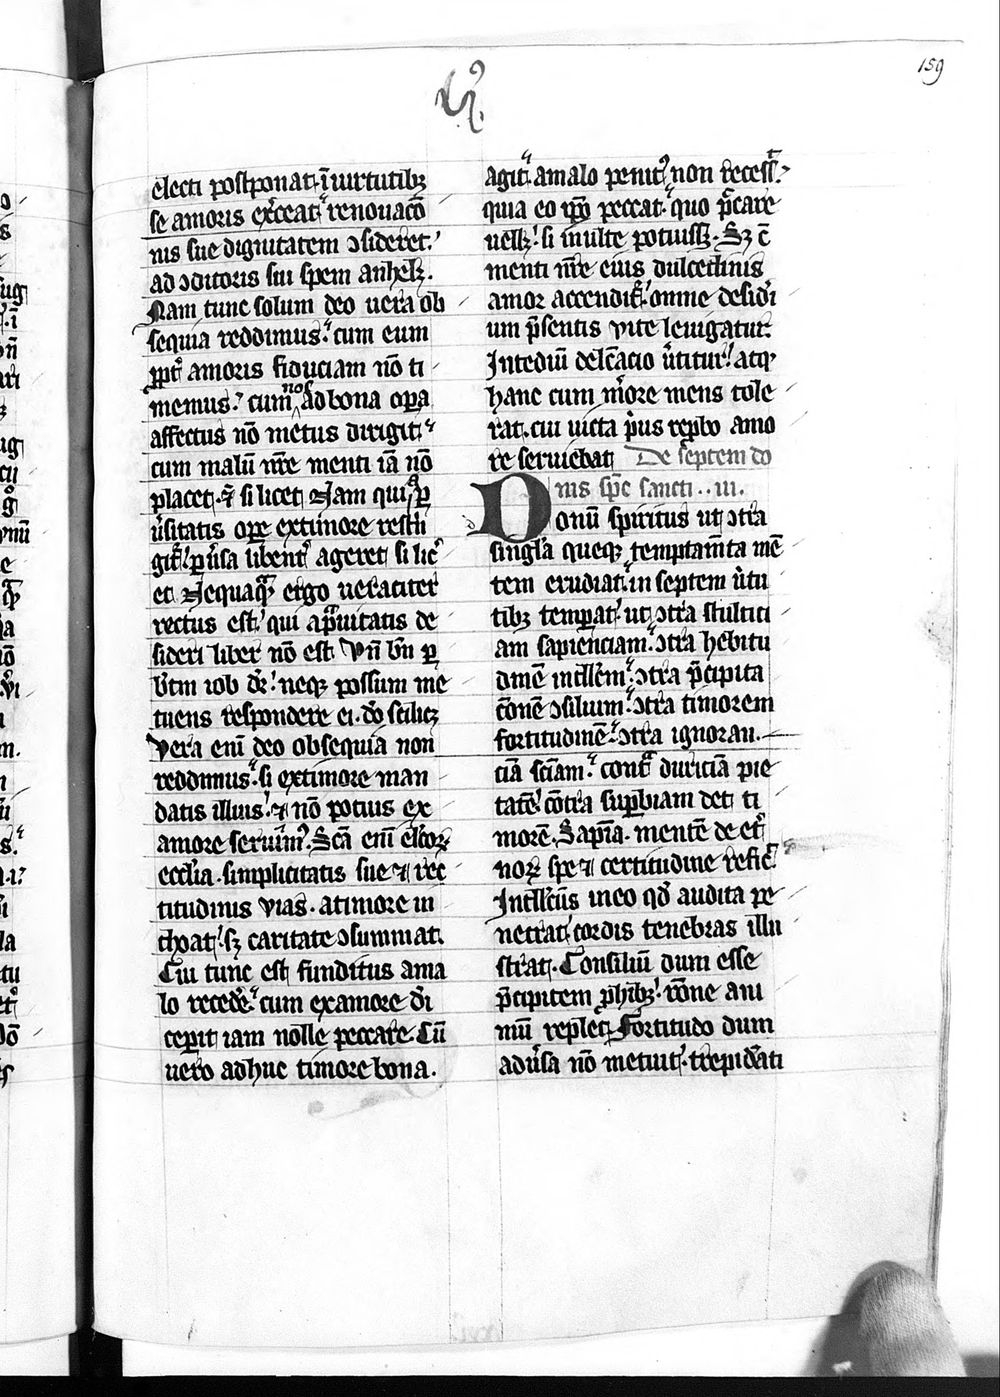 159
electi postponat. ī uirtutibꝫ
se amoris exˀceat. renouacō
nis sue dignitatem ↄsideret.
ad ↄditoris sui spem anhelꝫ.
Nam tunc solum deo uera ob
sequia reddimus. cum eum
ꝓpť amoris fiduciam nō ti
memus. cum nos ad bona oꝑa
affectus nō metus dirigit.
cum malū nr̄e menti iā nō
placet. ⁊ si licet Nam qui a ꝑ
uˀsitatis oꝑe ex timore restrī
gitˀ. ꝑuˀsa libentˀ ageret si licˀ
et Nequaqᷓ ergo ueraciter
rectus est. qui a pᷓuitatis de
siderio liber nō est. Vn̄ bn̄ ꝑ
b̄tm iob drˀ. neqꝫ possum me
tuens respondere ei. do scilicꝫ
vera eni deo obsequia non
reddimus. si ex timore man
datis illius. ⁊ nō potius ex
amore seruimˀ. Scā eni elcōꝝ
eccl̄ia. simplicitatis sue ⁊ rec
titudinis vias. a timore in
choat. sꝫ caritate ↄsummat.
Cui tunc est funditus a ma
lo recedeˀ. cum ex amore di
cepit iam nolle peccare. Cū
uero adhuc timore bona.
agit. a malo penitˀ non recessit.
quia eo ip̄o peccat. quo pˀcare
uellꝫ. si inulte potuissꝫ. Sꝫ cū
menti nr̄e eius dulcedinis
amor accenditˀ. omne desidˀi
um pˀsentis vite leuigatur.
In tediū delc̄acio uˀtiturˀ. atqꝫ
hanc cum mˀore mens tole
rat. cui uicta pˀus reꝓbo amo
re seruiebat De septem do
nis spc̄ sancti .. iii.
Donū spiritus ut ↄtra
singl̄a queqꝫ temptam̄ta mē
tem erudiat. in septem uˀtu
tibꝫ temꝑat. ut ↄtra stultici
am sapienciam. ↄtra hebitu
dinē intllc̄m. ↄtra pˀcipita
cōnē ↄsilium. ↄtra timorem
fortitudinē. ↄtra ignoran.
ciā sciām. contᷓ duriciā pie
tatē. cōtra suꝑbiam det ti
morē. Sapīa. mentē de etˀ
noꝝ spe ⁊ certitudine reficˀ
Intllc̄us in eo qd̄ audita pe
netrat. cordis tenebras illu
strat. Consiliū dum esse
pˀcipitem ꝓhibꝫ. rōne ani
mū replet. Fortitudo dum
aduˀsa nō metuit. trepidāti